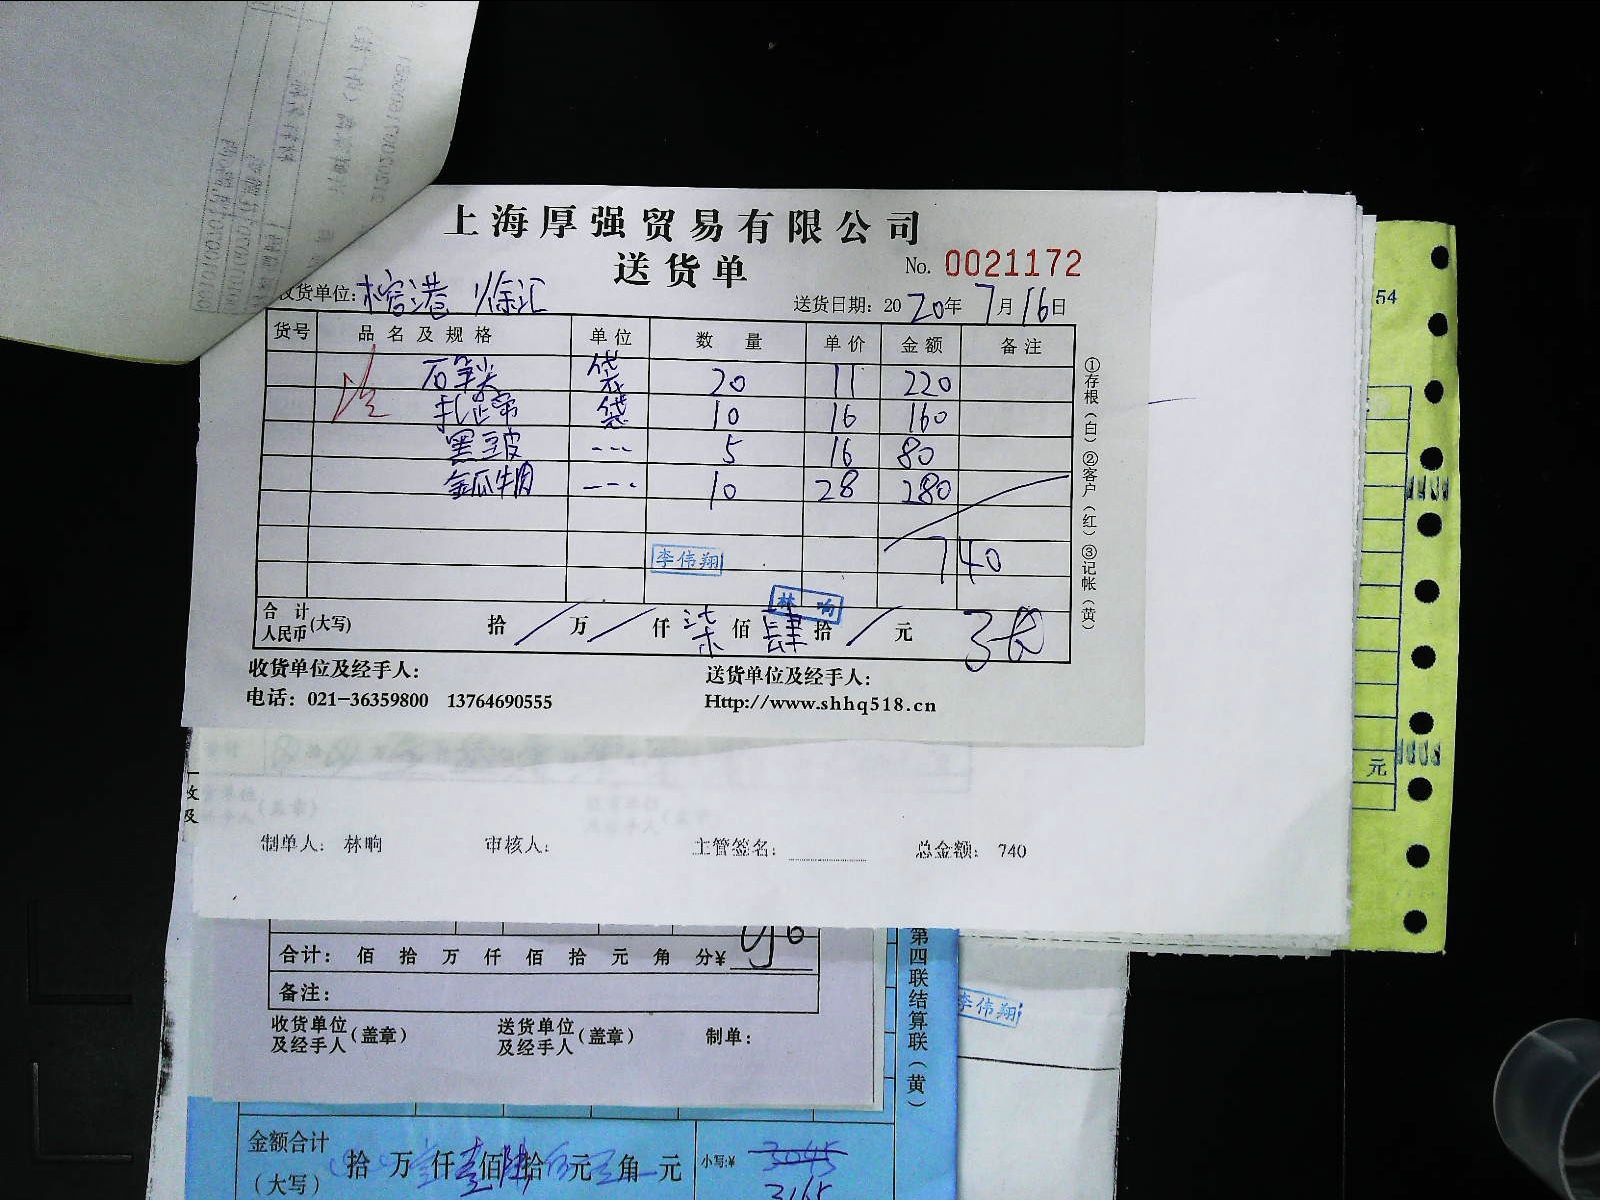 上海厚强贸易有限公司
送货单
No. 0021172
收货单位: 榕港 徐汇
送货日期: 2020年7月16日
货号 品名及规格 单位 数量 单价 金额 备注
石笋尖 袋 20 11 220
扎蹄 袋 10 16 160
黑豆皮 --- 5 16 80
金瓜牛肉 --- 10 28 280
740
李伟翔
林响
合计人民币(大写) 拾 / 万 / 仟 柒 佰 肆 拾 / 元
①存根(白)②客户(红)③记帐(黄)
收货单位及经手人:
送货单位及经手人:
电话: 021-36359800 13764690555
Http://www.shhq518.cn
54
元
收
及
制单人: 林响 审核人: 主管签名: 总金额: 740
合计: 佰 拾 万 仟 佰 拾 元 角 分¥
备注:
收货单位及经手人(盖章) 送货单位及经手人(盖章) 制单:
第四联结算联(黄)
李伟翔
金额合计(大写) 拾 万 仟 壹 佰 陆 拾 元 角 元 小写:¥ 3045
3165